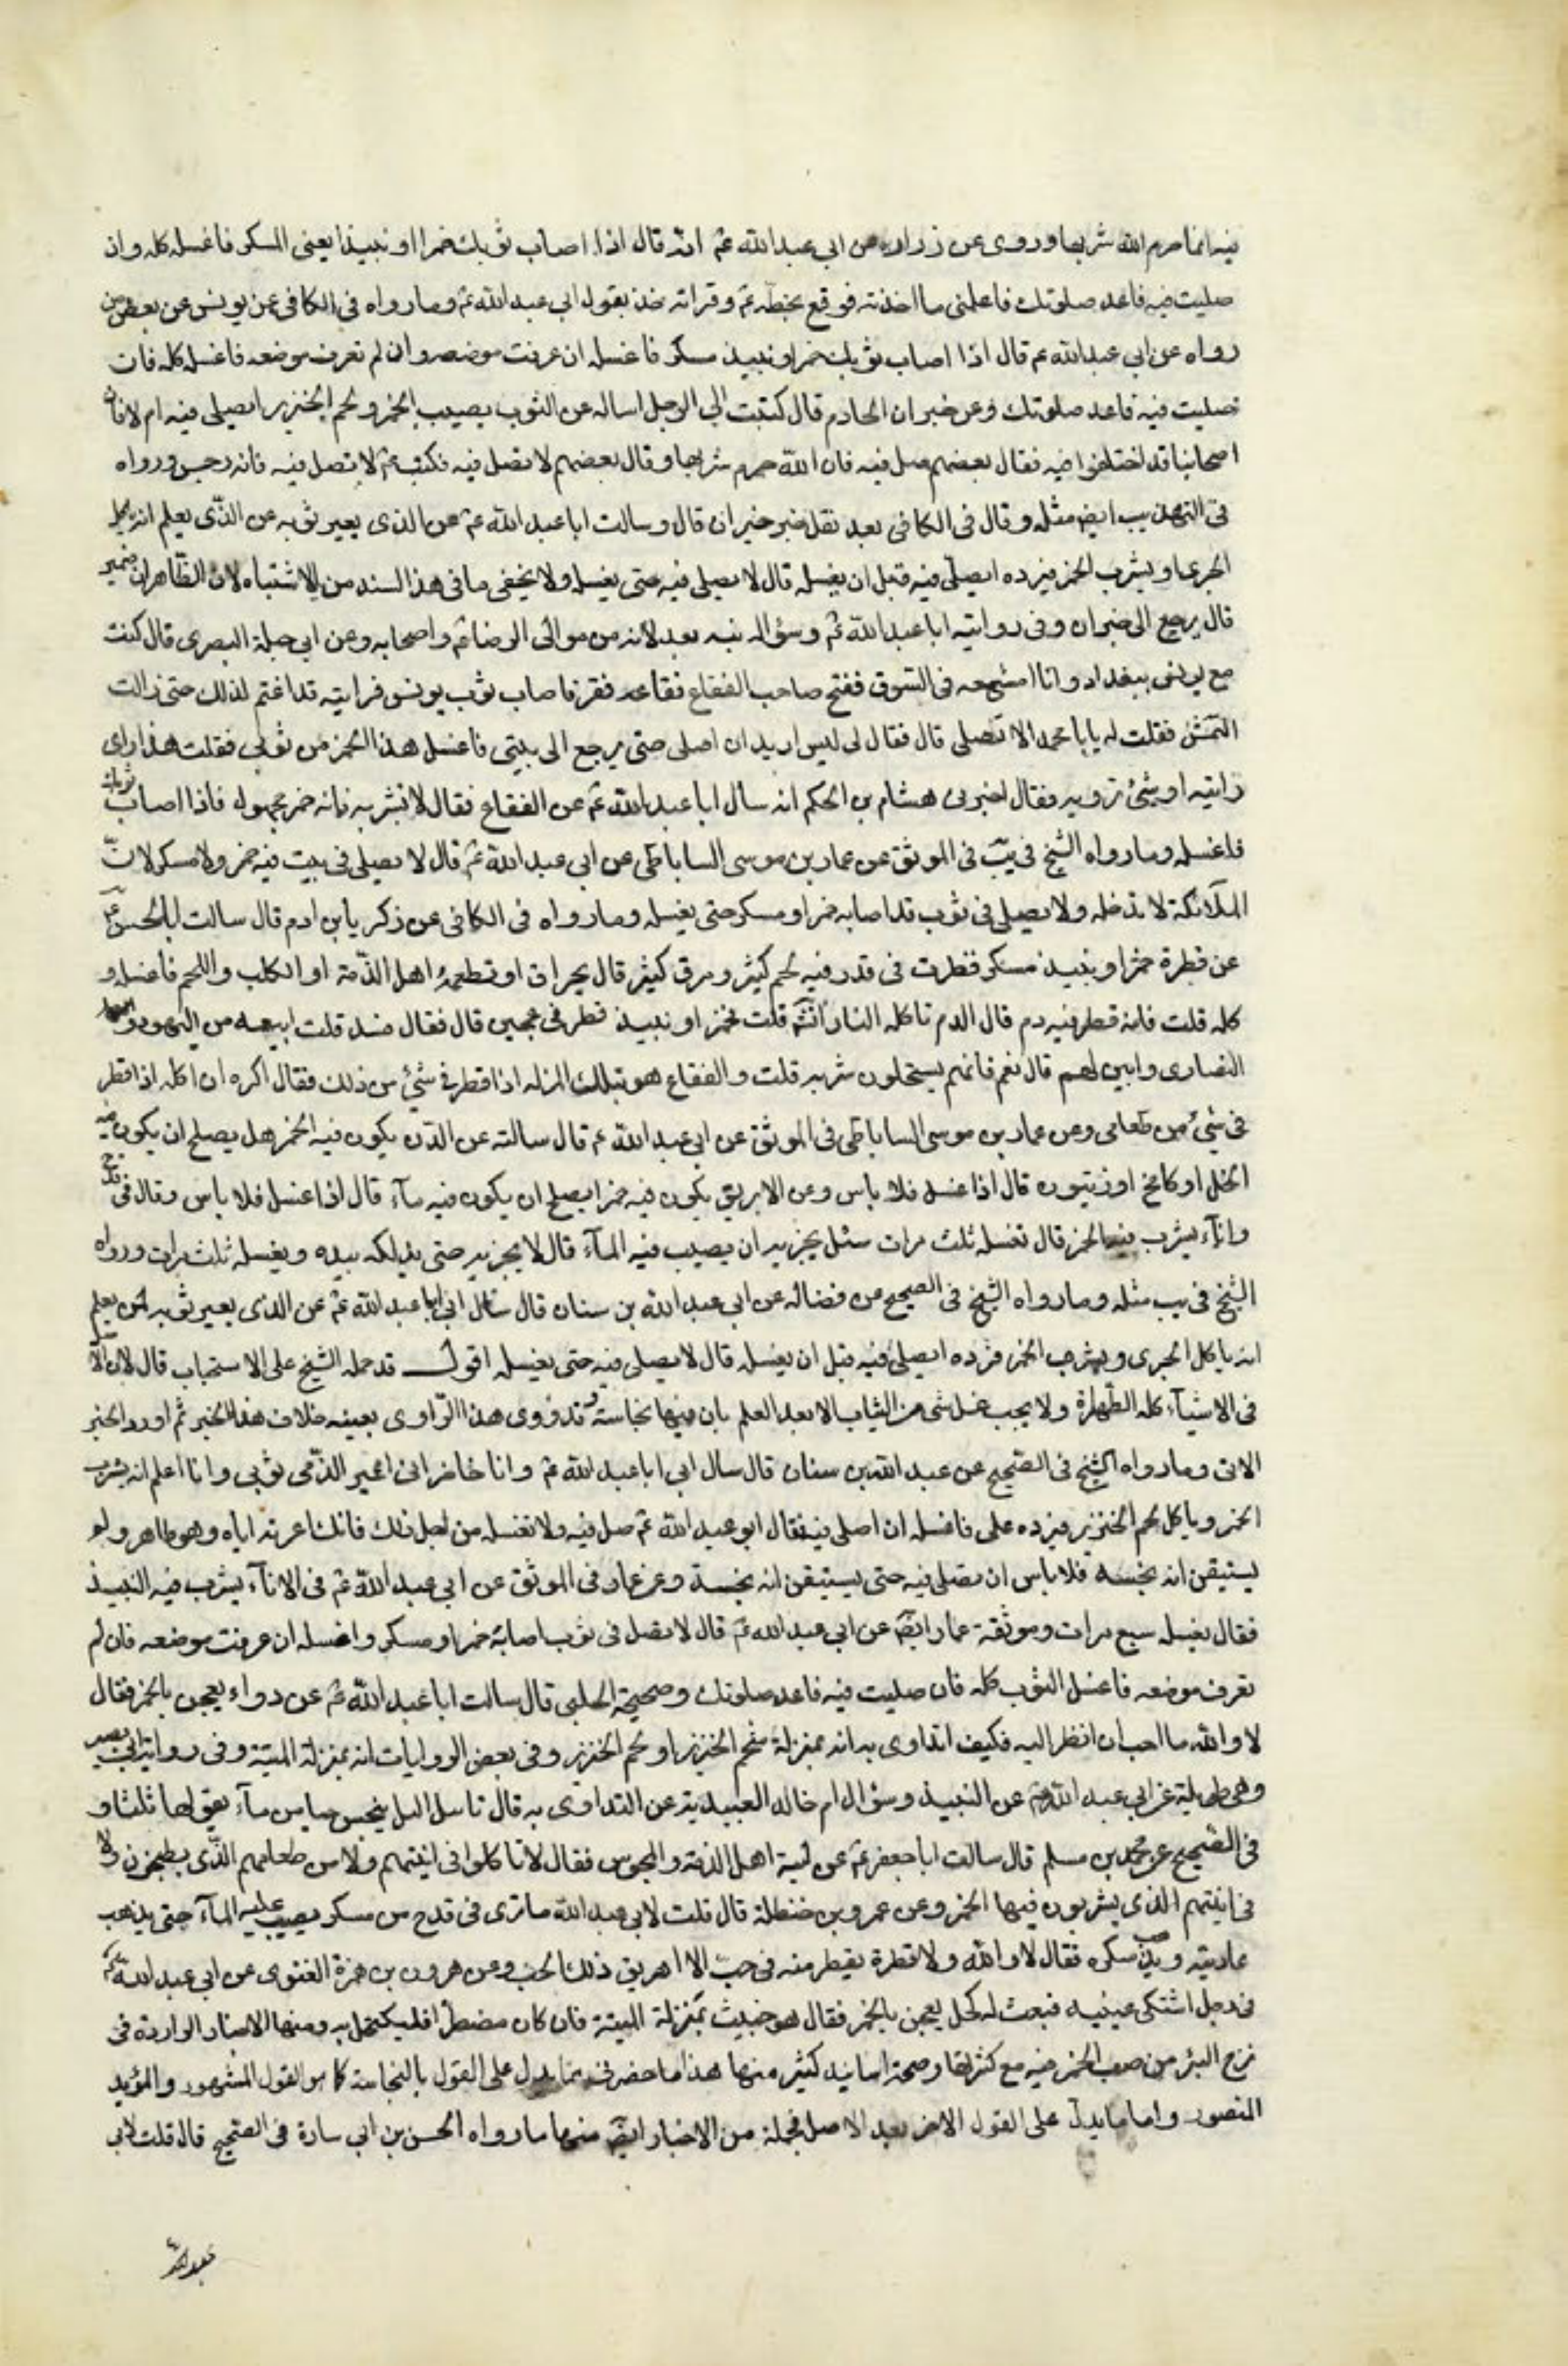 فيه انما حرم الله شربها وروى عن زراره عن ابي عبدالله عم انه قال اذا اصاب ثوبك خمرا او نبيذا يعنى المسكر فاغسله كله وان
صليت فيه فاعد صلوتك فاعلمنى ما اخذ به فوقع بخطه عم وقراته خذ بقول ابي عبدالله عم وما رواه فى الكافى عن يونس عن بعض من
رواه عن ابي عبدالله عم قال اذا اصاب ثوبك خمر او نبيذ مسكر فاغسله ان عرفت موضعه وان لم تعرف موضعه فاغسله كله فان
صليت فيه فاعد صلوتك وعن خيران الخادم قال كتبت الى الرجل اساله عن الثوب يصيب الخمر ولحم الخنزير ايصلى فيه ام لا فان
اصحابنا قد اختلفوا فيه فقال بعضهم صل فيه فان الله حرم شربها وقال بعضهم لا تصل فيه فكتب عم لا تصل فيه فانه رجس ورواه
فى التهذيب ايضا مثله وقال فى الكافى بعد نقل خبر خيران قال وسالت ابا عبد الله عم عن الذى يعير ثوبه عن الذى يعلم انه ياكل
الجرى او يشرب الخمر فيرده ايصلى فيه قبل ان يغسله قال لا يصلى فيه حتى يغسله ولا يخفى ما فى هذا السند من الاشتباه لان الظاهر ان ضمير
قال يرجع الى خيران وفى روايته ابا عبدالله عم وسؤاله فيه بعد لانه من موالى الرضا عم واصحابه وعن ابي جميلة البصرى قال كنت
مع يونس ببغداد وانا امشى معه فى السوق ففتح صاحب الفقاع فقاعه فقفز فاصاب ثوب يونس فرايته قد اغتم لذلك حتى زالت
الشمس فقلت له يا با محمد الا تصلى قال فقال لى ليس اريد ان اصلى حتى يرجع الى بيتى فاغسل هذا الخمر من ثوبى فقلت هذا راى
رايته او شئ ترويه فقال اخبرنى هشام بن الحكم انه سال ابا عبدالله عم عن الفقاع فقال لا تشربه فانه خمر مجهول فاذا اصاب ثوبك
فاغسله وما رواه الشيخ فى يب فى الموثق عن عمار بن موسى الساباطى عن ابي عبد الله عم قال لا يصلى فى بيت فيه خمر ولا مسكر لان
الملائكة لا تدخله ولا يصلى فى ثوب قد اصابه خمر او مسكر حتى يغسله وما رواه فى الكافى عن زكريا بن ادم قال سالت ابا الحسن عم
عن قطرة خمر او نبيذ مسكر قطرت فى قدر فيه لحم كثير ومرق كثير قال يهراق او تطعمه اهل الذمة او الكلب واللحم فاغسله و
كله قلت فانه قطر فيه دم قال الدم تاكله النار انشه قلت فخمر او نبيذ قطر فى عجين قال فقال فسد قلت ابيعه من اليهود و
النصارى وابين لهم قال نعم فانهم يستحلون شربه قلت والفقاع هو بتلك المنزله اذا قطر فى شئ من ذلك فقال اكره ان اكله اذا قطر
فى شئ من طعامى وعن عمار بن موسى الساباطى فى الموثق عن ابي عبدالله عم قال سالته عن الدن يكون فيه الخمر هل يصلح ان يكون فيه
الخل او كامخ او زيتون قال اذا غسل فلا باس وعن الابريق يكون فيه خمر ايصلح ان يكون فيه مآء قال اذا غسل فلا باس وقال فى قدح
وانآء يشرب فيه الخمر قال تغسله ثلث مرات سئل يجزيه ان يصب فيه المآء قال لا يجزيه حتى يدلكه بيده ويغسله ثلث مرات ورواه
الشيخ فى يب مثله وما رواه الشيخ فى الصحيح عن فضاله عن ابي عبد الله بن سنان قال سال ابى ابا عبد الله عم عن الذى يعير ثوبه لمن يعلم
انه ياكل الجرى ويشرب الخمر فيرده ايصلى فيه قبل ان يغسله قال لا يصلى فيه حتى يغسله اقول قد حمله الشيخ على الاستحباب قال لان الاصل
فى الاشيآء كله الطهارة ولا يجب غسل شئ من الثياب الا بعد العلم بان فيها نجاسة وقد روى هذا الراوى بعينه خلاف هذا الخبر ثم اورد الخبر
الاتى وما رواه الشيخ فى الصحيح عن عبد الله بن سنان قال سال ابى ابا عبد الله عم وانا حاضر انى اعير الذمى ثوبى وانا اعلم انه يشرب
الخمر وياكل لحم الخنزير فيرده على فاغسله ان اصلى فيه فقال ابو عبد الله عم صل فيه ولا تغسله من اجل ذلك فانك اعرته اياه وهو طاهر ولم
يستيقن انه نجسه فلا باس ان تصلى فيه حتى يستيقن انه نجسه وعن عمار فى الموثق عن ابي عبد الله عم فى الانآء يشرب فيه النبيذ
فقال يغسله سبع مرات وموثقة عمار ايضا عن ابي عبد الله عم قال لا تصل فى ثوب اصابه خمر او مسكر واغسله ان عرفت موضعه فان لم
تعرف موضعه فاغسل الثوب كله فان صليت فيه فاعد صلوتك وصحيحة الحلبى قال سالت ابا عبد الله عم عن دواء يعجن بالخمر فقال
لا والله ما احب ان انظر اليه فكيف اتداوى به انه بمنزلة شحم الخنزير او لحم الخنزير وفى بعض الروايات انه بمنزلة الميتة وفى رواية ابى بصير
وهى طويلة عن ابي عبد الله عم عن النبيذ وسؤال ام خالد العبيدية عن التداوى به قال ما يبل الميل ينجس حبا من مآء يقولها ثلثا و
فى الصحيح عن محمد بن مسلم قال سالت ابا جعفر عم عن انية اهل الذمة والمجوس فقال لا تاكلوا فى انيتهم ولا من طعامهم الذى يطبخون ولا
فى انيتهم الذى يشربون فيها الخمر وعن عمرو بن حنظلة قال قلت لابى عبد الله ما ترى فى قدح من مسكر يصب عليه المآء حتى يذهب
عاديته و يذهب سكره فقال لا والله ولا قطرة يقطر منه فى حب الا اهريق ذلك الحب وعن هرون بن حمزة الغنوى عن ابي عبد الله عم
فى رجل اشتكى عينيه فبعث له كحل يعجن بالخمر فقال هو خبيث بمنزلة الميتة فان كان مضطرا فليكتحل به ومنها الاخبار الواردة فى
نزح البئر من صب الخمر فيه مع كثرتها وصحة اسانيد كثير منها هذا ما حضرنى مما يدل على القول بالنجاسة كما هو القول المشهور والمؤيد
المنصور واما ما يدل على القول الاخر بعد الاصل فجملة من الاخبار ايضا منها ما رواه الحسن بن ابى سارة فى الصحيح قال قلت لابى
عبدالله